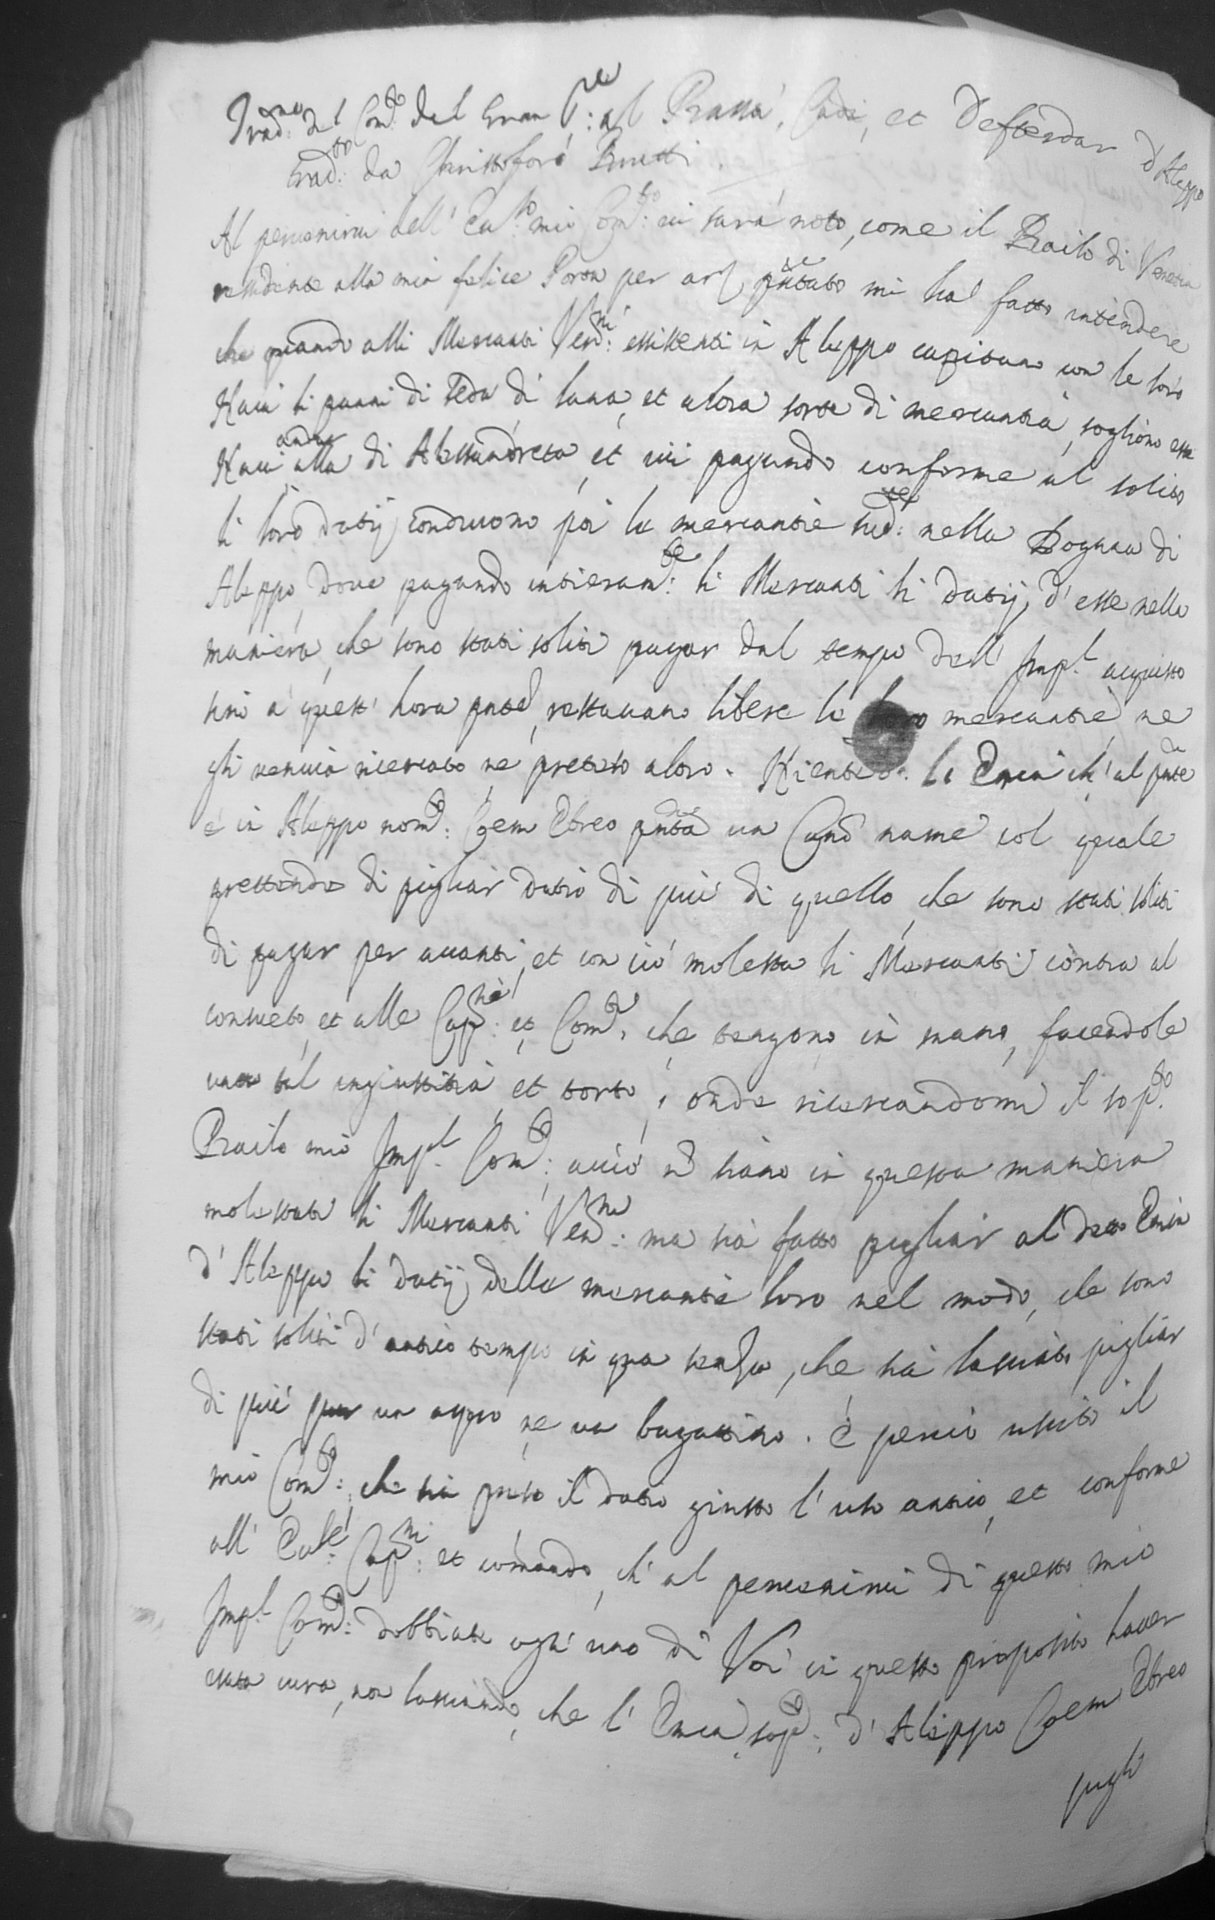 Trad:ne del Com:to del Gran Sre: al Bassà, Cadì, et Defterdar d'Aleppo
trad:to da Christoforo Brutti.
Al pervenirvi dell' Ecc:so mio Com:to vi sarà noto, come il Bailo di Venetia
residente alla mia felice Porta per arz pntato mi hà fatto intendere
che quando alli Mercanti Ven:ni essistenti in Aleppo capitano con le loro
Navi li panni di seda di lana, et altra sorte di mercantia, sogliono esse
Navi andar alla di Alessandreta, et ivi pagando conforme al solito
li loro datij conducono poi le mercantie sud:te nella Dogana di
Aleppo, dove pagando intieram:te li Mercanti li datij d'esse nella
maniera, che sono stati soliti pagar dal tempo dell' Imp:l acquisto
sino à quest' hora pnte, restavano libere le loro mercantie, ne
gli veniva ricercato ne preteso altro. Niented: le Emin ch' al pnte
è in Aleppo nom:to Coem Ebreo pnta un Cand name col quale
prettende di pigliar datio di più di quello, che sono stati soliti
di pagar per avanti, et con ciò molesta li Mercanti contra al
consueto, et alle Cap:ni et Com:ti che tengono in mano, facendole
una tal ingiustitia, et torto, onde ricercandomi il sop:to
Bailo mio Imp:l Com:to acciò nõ siano in questa maniera
molestati li Mercanti Ven:ni ma sia fatto pigliar al detto Emin
d'Aleppo li datij delle mercantie loro nel modo, che sono
stati soliti d'antico tempo in qua senza, che sia lasciato pigliar
di più pur un aspro ne un bagattino. È perciò uscito il
mio Com:to che sia preso il datio giusto l'uso antico, et conforme
all' Ecc:se Cap:ni et comando, ch' al pervenirvi di questo mio
Imp:l Com:to dobbiate ogn' uno di Voi in questo proposito haver
esata cura, non lassando, che l'Emin sop:to d'Aleppo Coem Ebreo
pigli